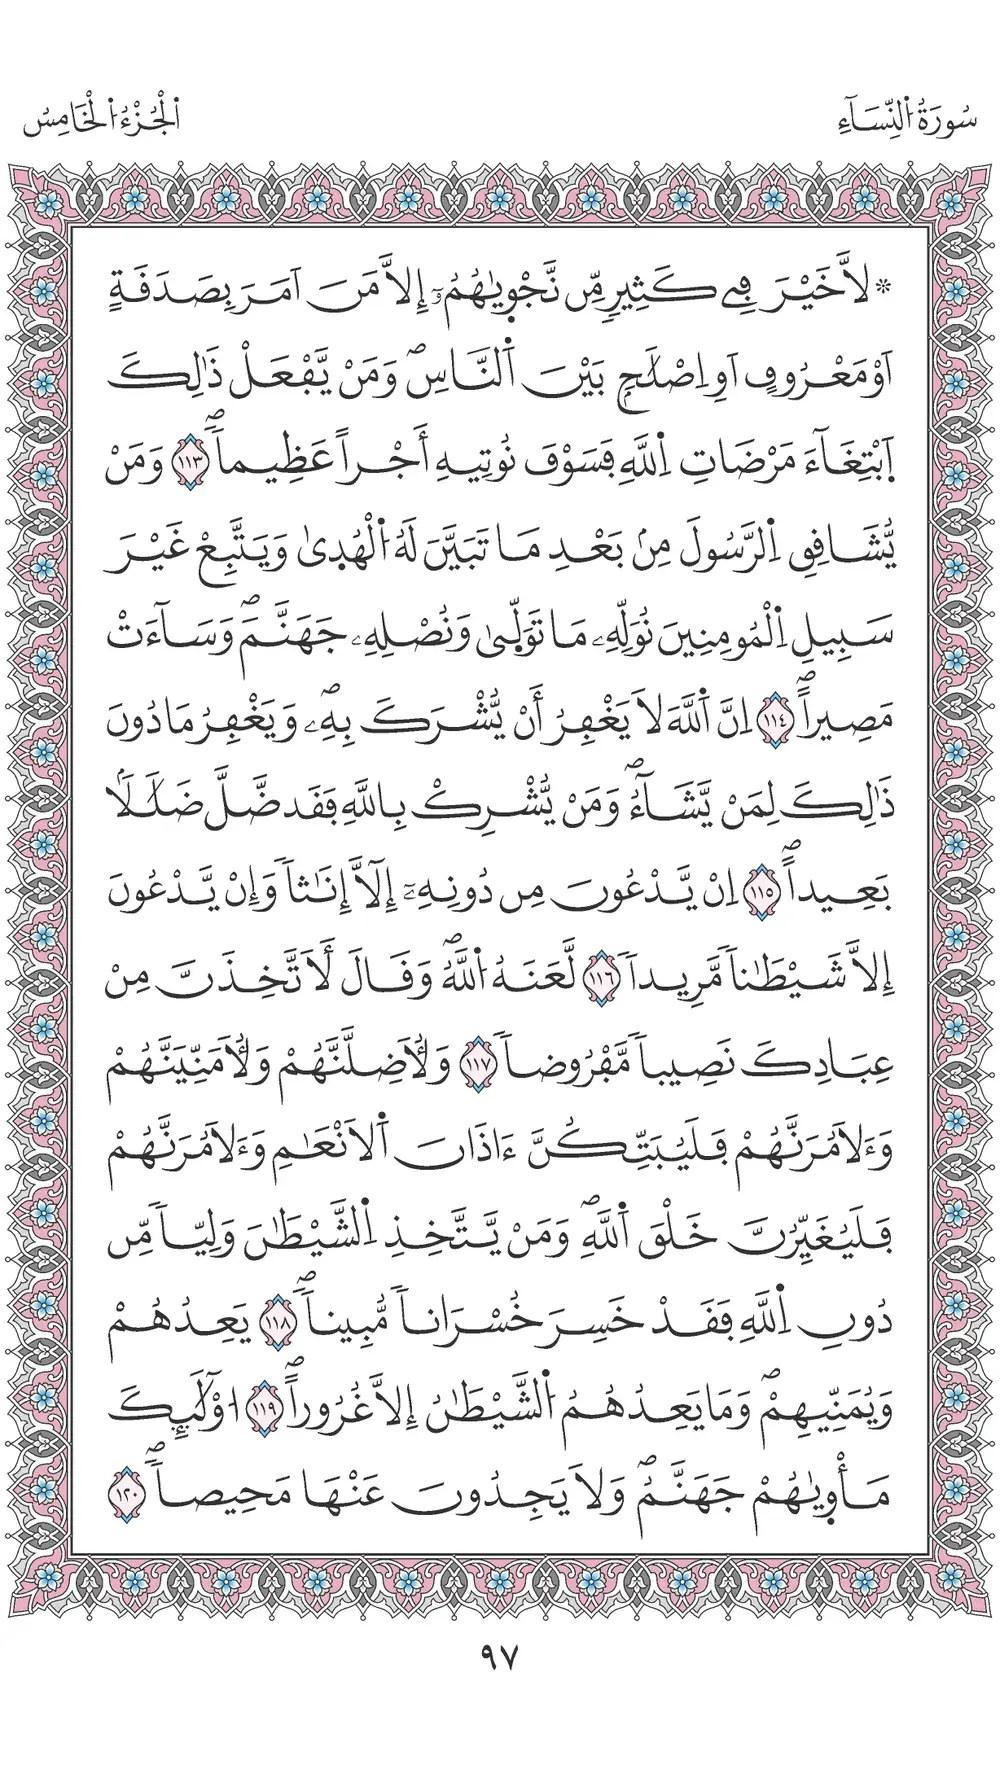 سُورَةُ اُ۬لنِّسَآءِ
اَ۬لْجُزْءُ اُ۬لْخَامِسُ
۞ لَّا خَيْرَ فِے كَثِيرٖ مِّن نَّجْو۪يٰهُمُۥٓ إِلَّا مَنَ اَمَرَ بِصَدَقَةٍ
اَوْ مَعْرُوفٍ اَوِ اِصْلَٰحِۢ بَيْنَ اَ۬لنَّاسِۖ وَمَنْ يَّفْعَلْ ذَٰلِكَ
اَ۪بْتِغَآءَ مَرْضَاتِ اِ۬للَّهِ فَسَوْفَ نُوتِيهِ أَجْراً عَظِيماٗۖ ١١٣ وَمَنْ
يُّشَاقِقِ اِ۬لرَّسُولَ مِنۢ بَعْدِ مَا تَبَيَّنَ لَهُ اُ۬لْهُد۪يٰ وَيَتَّبِعْ غَيْرَ
سَبِيلِ اِ۬لْمُومِنِينَ نُوَلِّهِۦ مَا تَوَلّ۪يٰ وَنُصْلِهِۦ جَهَنَّمَۖ وَسَآءَتْ
مَصِيراًۖ ١١٤ اِنَّ اَ۬للَّهَ لَا يَغْفِرُ أَنْ يُّشْرَكَ بِهِۦۖ وَيَغْفِرُ مَا دُونَ
ذَٰلِكَ لِمَنْ يَّشَآءُۖ وَمَنْ يُّشْرِكْ بِاللَّهِ فَقَد ضَّلَّ ضَلَٰلَۢا
بَعِيداًۖ ١١٥ اِنْ يَّدْعُونَ مِن دُونِهِۦٓ إِلَّآ إِنَٰثاٗ وَإِنْ يَّدْعُونَ
إِلَّا شَيْطَٰناٗ مَّرِيداٗ ١١٦ لَّعَنَهُ اُ۬للَّهُۖ وَقَالَ لَأَتَّخِذَنَّ مِنْ
عِبَادِكَ نَصِيباٗ مَّفْرُوضاٗ ١١٧ وَلَأُضِلَّنَّهُمْ وَلَأُمَنِّيَنَّهُمْ
وَءَلَامُرَنَّهُمْ فَلَيُبَتِّكُنَّ ءَاذَانَ اَ۬لَانْعَٰمِ وَءَلَامُرَنَّهُمْ
فَلَيُغَيِّرُنَّ خَلْقَ اَ۬للَّهِۖ وَمَنْ يَّتَّخِذِ اِ۬لشَّيْطَٰنَ وَلِيّاٗ مِّن
دُونِ اِ۬للَّهِ فَقَدْ خَسِرَ خُسْرَاناٗ مُّبِيناٗۖ ١١٨ يَعِدُهُمْ
وَيُمَنِّيهِمْۖ وَمَا يَعِدُهُمُ اُ۬لشَّيْطَٰنُ إِلَّا غُرُوراًۖ ١١٩ ا۟وْلَٰٓئِكَ
مَأْو۪يٰهُمْ جَهَنَّمُۖ وَلَا يَجِدُونَ عَنْهَا مَحِيصاٗۖ ١٢٠
٩٧